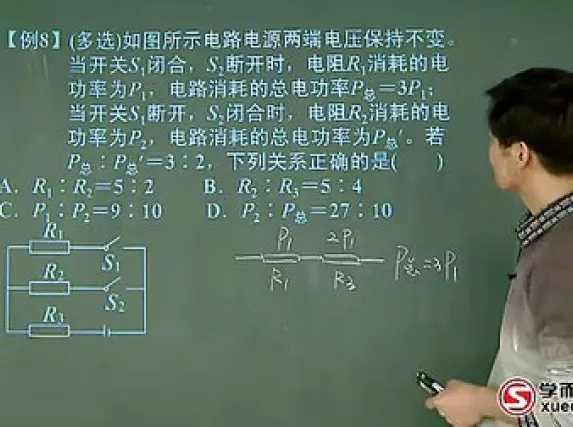 【例8】(多选)如图所示电路电源两端电压保持不变。
当开关S₁闭合，S₂断开时，电阻R₁消耗的电
功率为P₁，电路消耗的总电功率P总＝3P₁；
当开关S₁断开，S₂闭合时，电阻R₂消耗的电
功率为P₂，电路消耗的总电功率为P总′。若
P总∶P总′＝3∶2，下列关系正确的是(　　)
A. R₁∶R₂＝5∶2　　B. R₂∶R₃＝5∶4
C. P₁∶P₂＝9∶10　　D. P₂∶P总＝27∶10
R₁
S₁
R₂
S₂
R₃
P₁ 2P₁
R₁ R₃
P总=3P₁
学而
xue